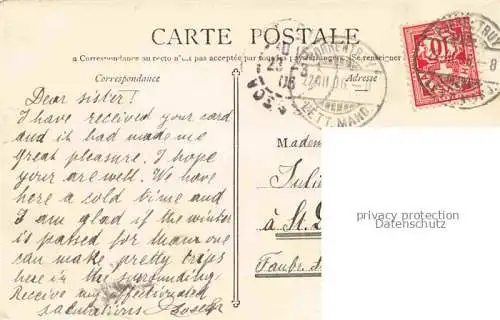 CARTE POSTALE
La Correspondance au recto n'est pas acceptée par tous les pays étrangers
Correspondance
Adresse
Dear sister!
I have received your card
and it had made me
great pleasure. I hope
your are well. We have
here a cold time and
I am glad if the winter
is passed for than one
can make pretty trips
here in the surrounding.
Receive my affectionated
salutations Joseph
Madem
Julie
à St.
Faub. d
PORRENTRUY
LETT. MAND.
10
privacy protection
Datenschutz